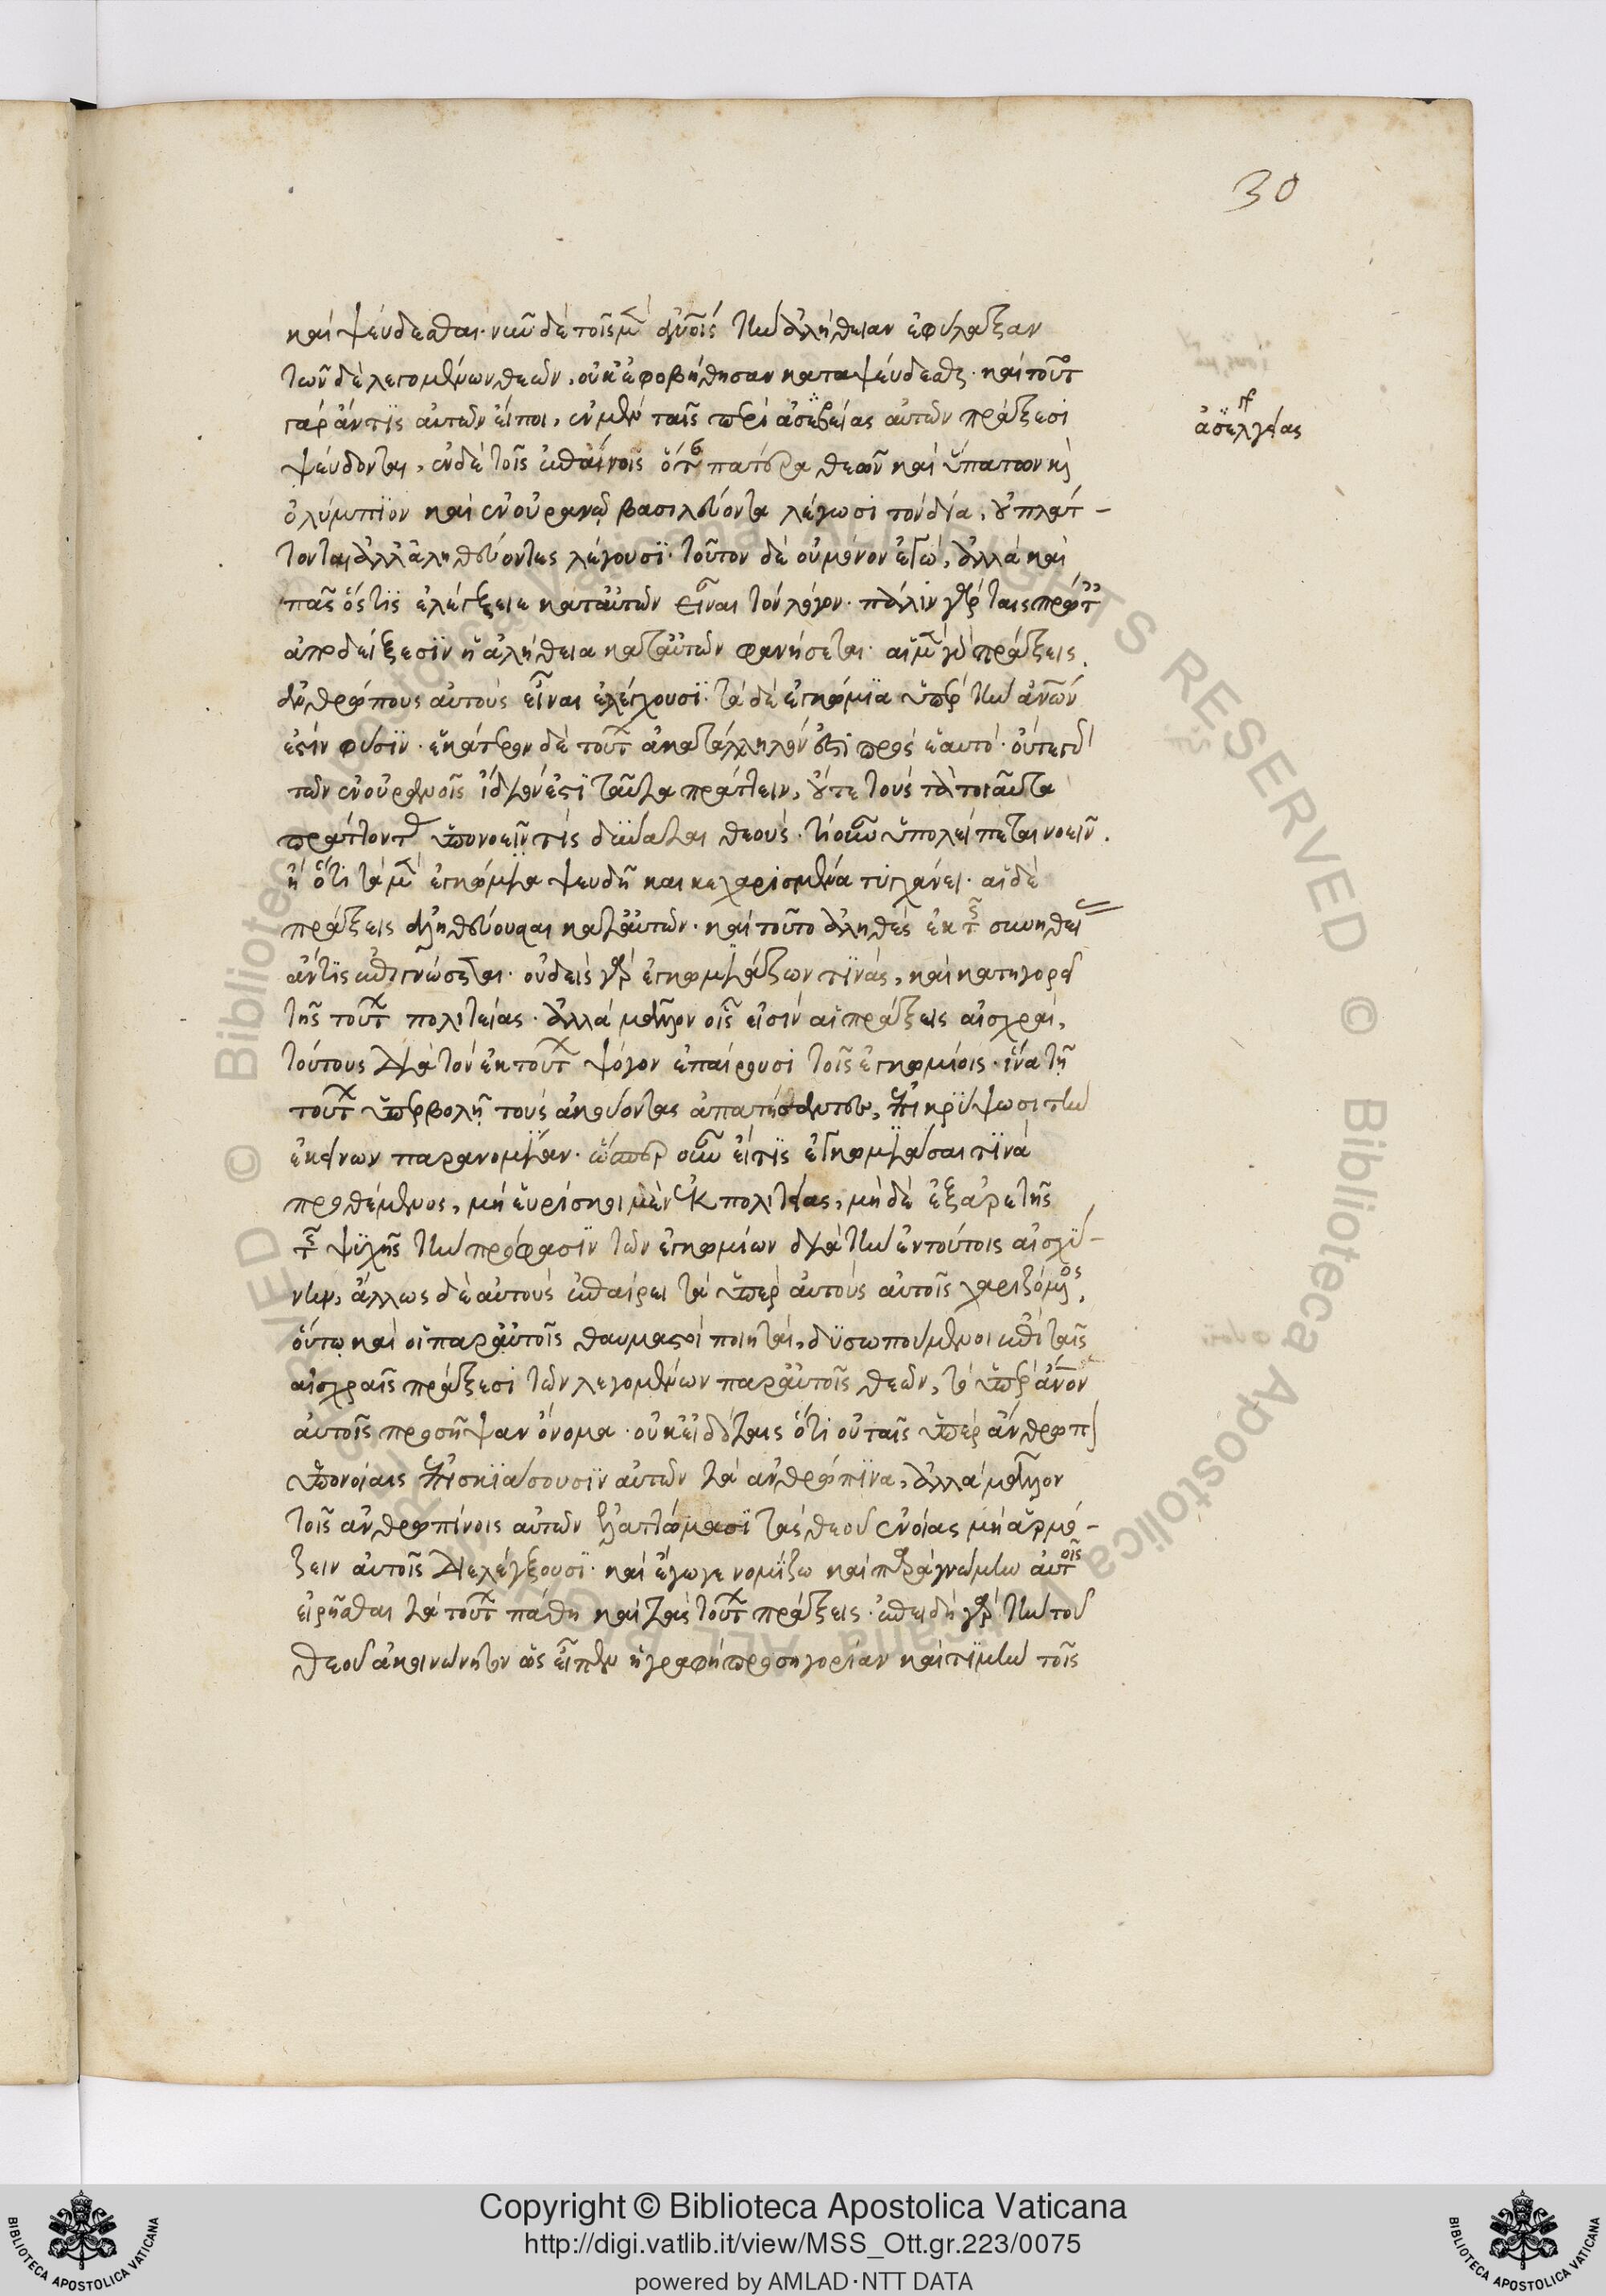 30
καὶ ψεύδεσθαι· νῦν δὲ τοῖς μ(ὲν) ἀν(θρώπ)οις τὴν ἀλήθειαν ἐφύλαξαν
τῶν δὲ λεγομένων θεῶν, οὐκ ἐφοβήθησαν καταψεύδεσθαι· καὶ τοῦτ
γὰρ ἄν τις αὐτῶν εἴποι, ἐν μὲν ταῖς περὶ ἀσεβείας αὐτῶν πράξεσι
γρ
ἀσελγείας
ψεύδονται, ἐν δὲ τοῖς ἐπαίνοις ὅτε πατέρα θεῶν καὶ ὕπατον κὶ
ὀλύμπιον καὶ ἐν οὐρανῷ βασιλεύοντα λέγωσι τὸν δία, οὐ πλάτ-
τονται ἀλλ' ἀληθεύοντες λέγουσι· τοῦτον δὲ οὐ μόνον ἐγὼ, ἀλλὰ καὶ
πᾶς ὅστις ἐλέγξειε κατ' αὐτῶν εἶναι τὸν λόγον· πάλιν γὰρ ταῖς προτ
ἀποδείξεσιν ἡ ἀλήθεια κατ' αὐτῶν φανήσεται· αἱ μ(ὲν) γὰρ πράξεις
ἀνθρώπους αὐτοὺς εἶναι ἐλέγχουσι· τὰ δὲ ἐγκώμια ὑπὲρ τὴν ἀνων
ἐστὶν φύσιν· ἑκάτερον δὲ τούτ ἀκατάλληλόν ἐστι πρὸς ἑαυτό· οὔτε γὰρ
τῶν ἐν οὐρανοῖς ἴδιόν ἐστι ταῦτα πράττειν, οὔτε τοὺς τὰ τοιαῦτα
πράττοντας ὑπονοεῖν τίς δύναται θεούς· τί οὖν ὑπολείπεται νοεῖν.
ἢ ὅτι τὰ μ(ὲν) ἐγκώμια ψευδῆ καὶ κεχαρισμένα τυγχάνει· αἱ δὲ
πράξεις ἀληθεύουσαι κατ' αὐτῶν· καὶ τοῦτο ἀληθὲς ἐκ τῆς συνηθεί
ἄν τις ἐπιγνώσεται· οὐδεὶς γὰρ ἐγκωμιάζων τινὰς, καὶ κατηγορεῖ
τῆς τούτ πολιτείας· ἀλλὰ μᾶλλον οἷς εἰσὶν αἱ πράξεις αἰσχραί,
τούτους διὰ τὸν ἐκ τούτ ψόγον ἐπαίρουσι τοῖς ἐγκωμίοις· ἵνα τῇ
τούτ ὑπερβολῇ τοὺς ἀκούοντας ἀπατήσαντες, ἐπικρύψωσι τὴν
ἐκείνων παρανομίαν· ὥσπερ οὖν εἴ τις ἐγκωμιάσαι τινὰ
προθέμενος, μὴ εὑρίσκοι μὲν ἐκ πολιτείας, μὴ δὲ ἐξ ἀρετῆς
τῆς ψυχῆς τὴν πρόφασιν τῶν ἐγκωμίων διὰ τὴν ἐν τούτοις αἰσχύ-
νην, ἄλλως δὲ αὐτοὺς ἐπαίρει τὰ ὑπὲρ αὐτοὺς αὐτοῖς χαριζόμενος,
οὕτω καὶ οἱ παρ' αὐτοῖς θαυμαστοὶ ποιηταὶ, δυσωπούμενοι ἐπὶ ταῖς
αἰσχραῖς πράξεσι τῶν λεγομένων παρ' αὐτοῖς θεῶν, τὸ ὑπὲρ ἄνον
αὐτοῖς προσῆψαν ὄνομα· οὐκ εἰδότες ὅτι οὐ ταῖς ὑπὲρ ἄνθρωπ
ὑπονοίαις ἐπισκιάσουσιν αὐτῶν τὰ ἀνθρώπινα, ἀλλὰ μᾶλλον
τοῖς ἀνθρωπίνοις αὐτῶν ἐλαττώμασι τὰς θεοῦ ἐννοίας μὴ ἁρμό-
ζειν αὐτοῖς διελέγξουσι· καὶ ἔγωγε νομίζω καὶ παρὰ γνώμην αὐτοῖς
εἰρῆσθαι τὰ τούτ πάθη καὶ τὰς τούτ πράξεις· ἐπειδὴ γὰρ τὴν τοῦ
θεοῦ ἀκοινώνητον ὡς εἶπεν ἡ γραφὴ προσηγορίαν καὶ τιμὴν τοῖς
Copyright © Biblioteca Apostolica Vaticana
http://digi.vatlib.it/view/MSS_Ott.gr.223/0075
powered by AMLAD·NTT DATA